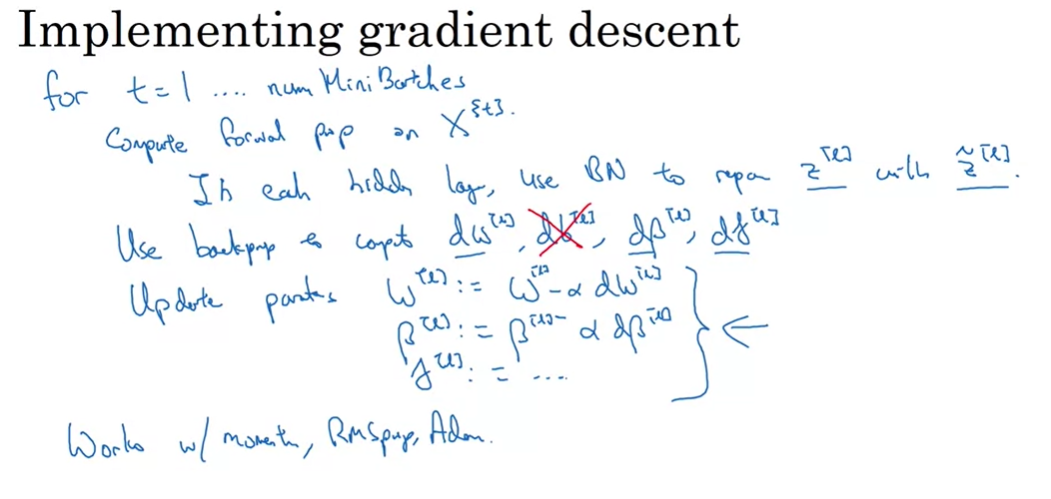 Implementing gradient descent
for t = 1 .... num Mini Batches
Compute forwal pop on X^{t}.
In each hidden lay, use BN to repa z^[l] with z̃^[l].
Use backprop to compt dw^[l], db^[l], dβ^[l], dγ^[l]
Update partes w^[l] := w^[l] - α dw^[l]
β^[l] := β^[l] - α dβ^[l]
γ^[l] := ....
Works w/ momentm, RMSprop, Adam.